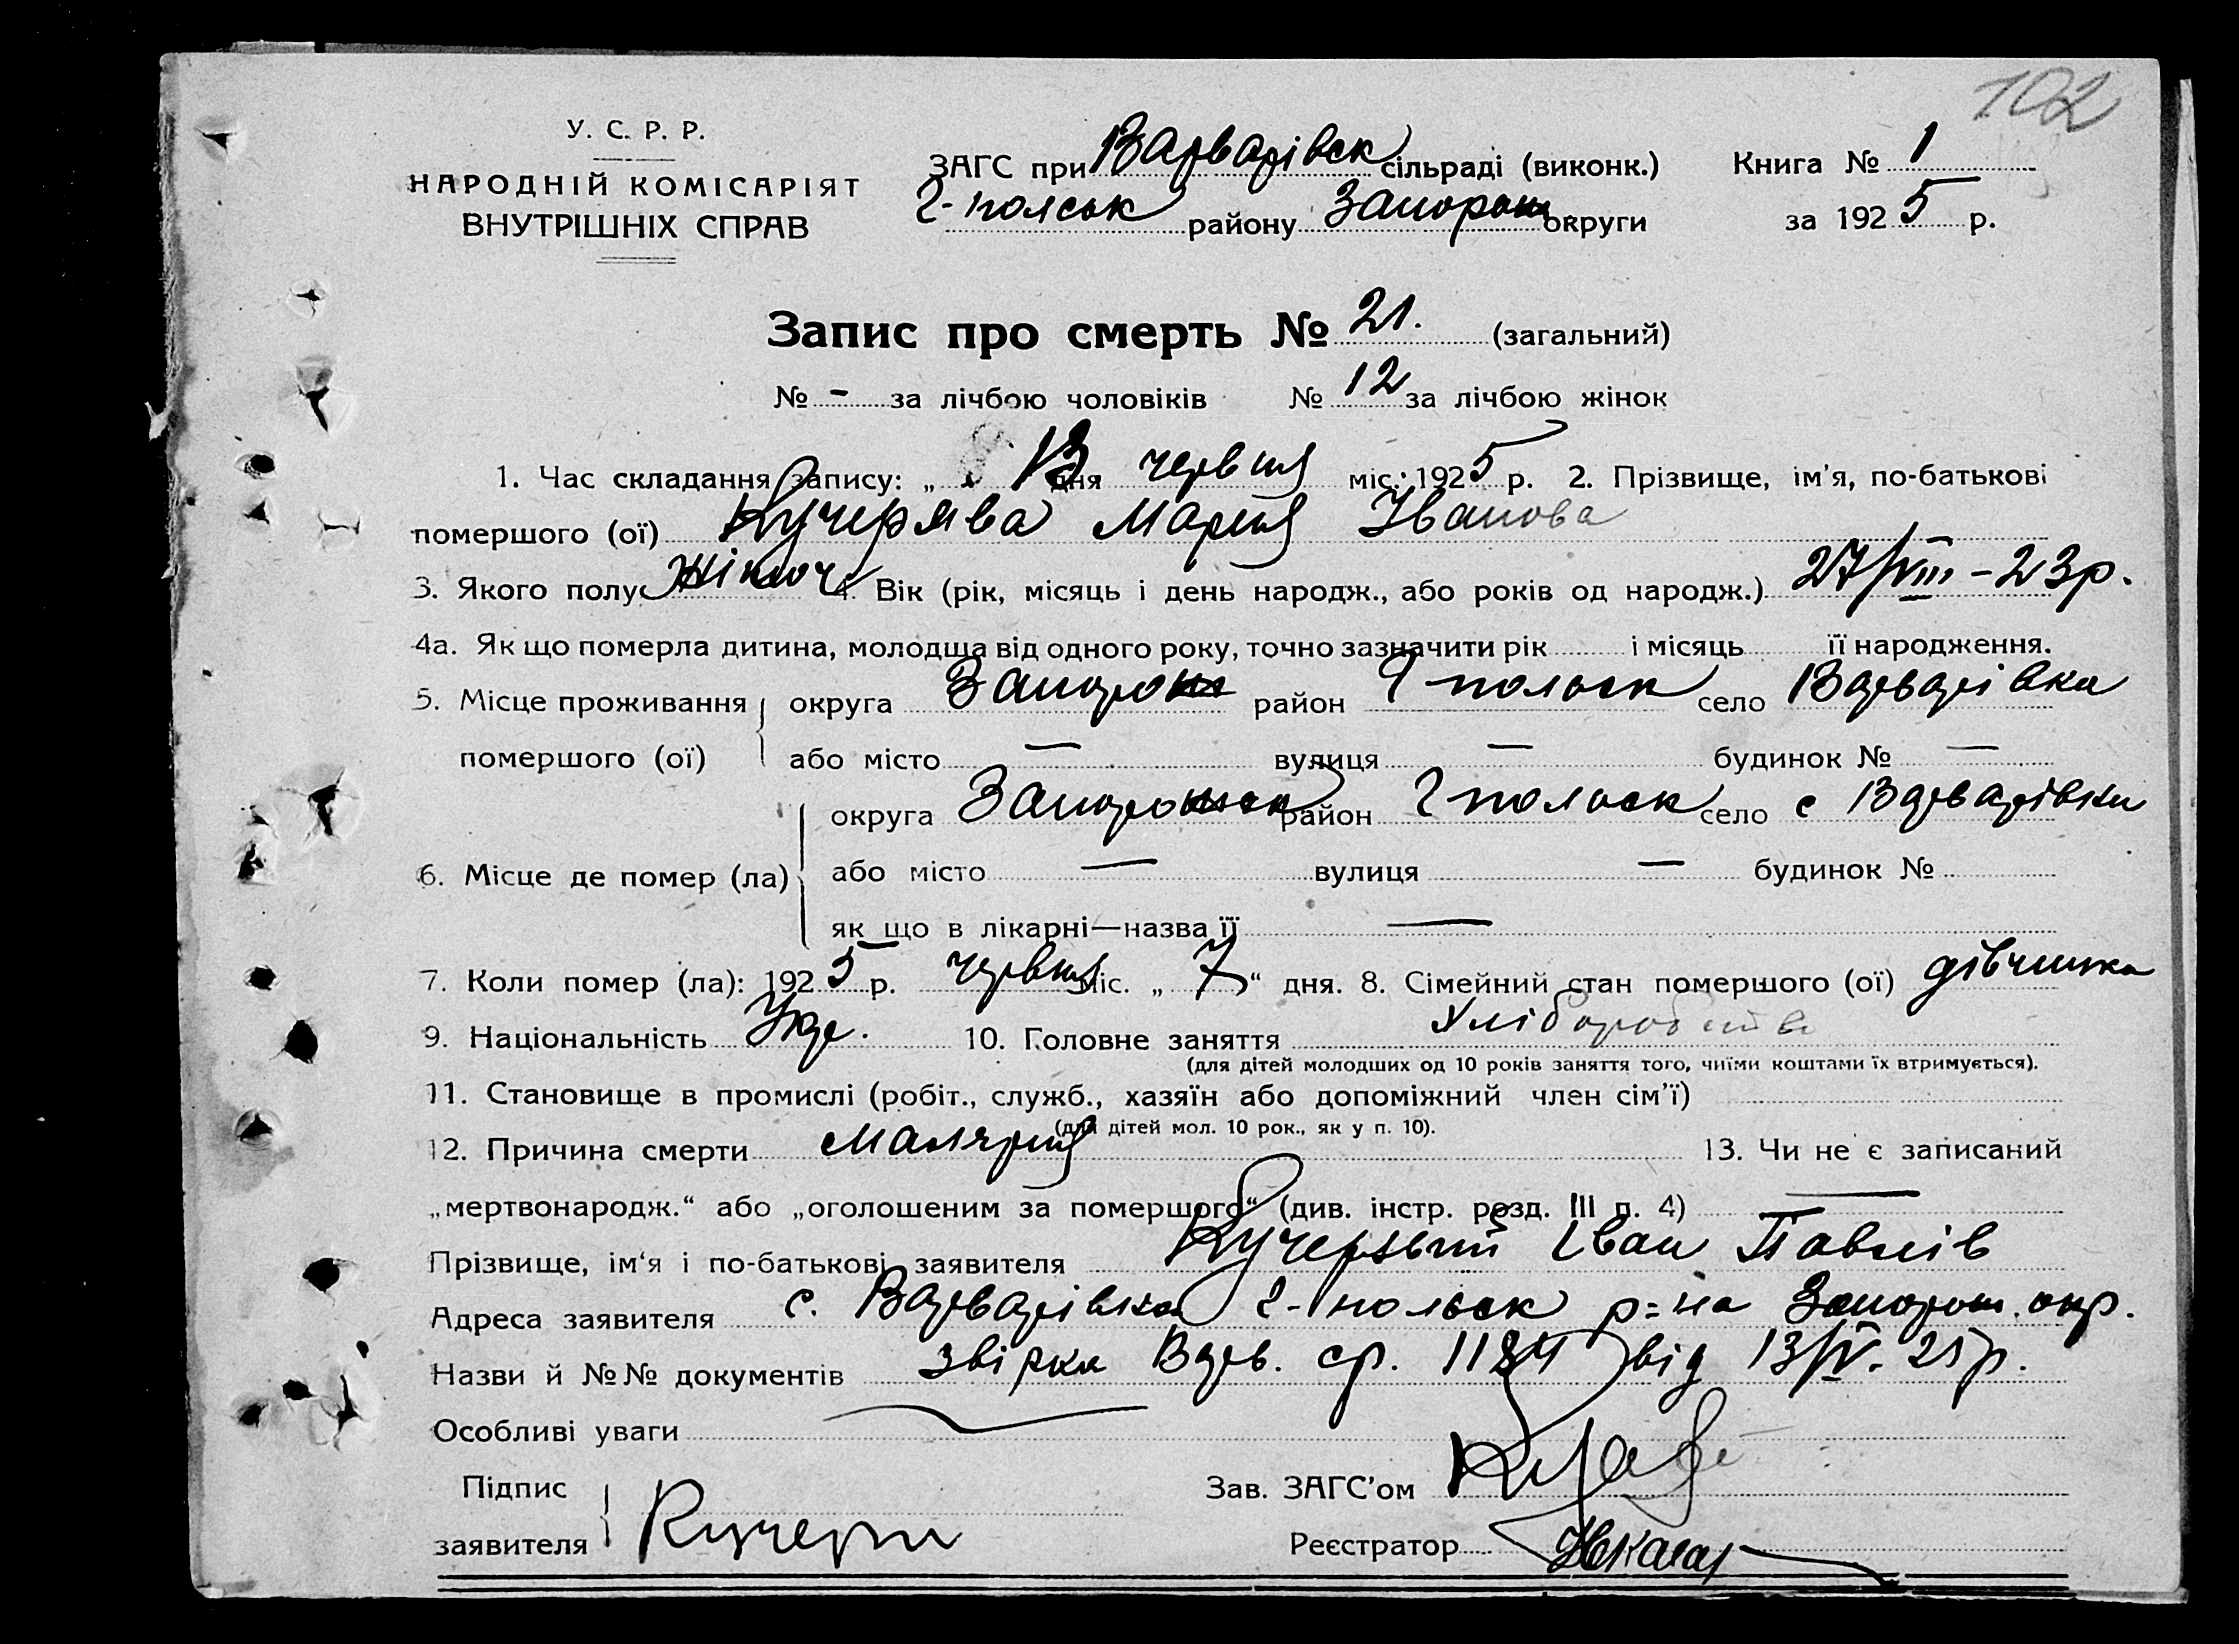 102
У. С. Р. Р.
НАРОДНІЙ КОМІСАРІЯТ
ВНУТРІШНІХ СПРАВ
ЗАГС при Варварівск сільраді (виконк.)
Г-польськ району Запорож округи
Книга № 1
за 1925 р.
Запис про смерть № 21. (загальний)
№ - за лічбою чоловіків № 12 за лічбою жінок
1. Час складання запису: „ 13 дня червня міс. 1925 р. 2. Прізвище, ім'я, по-батькові
помершого (ої) Кучерява Мария Іванова
3. Якого полу жіноч 4. Вік (рік, місяць і день народж., або років од народж.) 27/VIII - 23р.
4а. Як що померла дитина, молодща від одного року, точно зазначити рік і місяць її народження.
5. Місце проживання округа Запорож район Г польськ село Варварівка
помершого (ої) або місто — вулиця — будинок № —
округа Запорожск район Г польськ село с Варварівки
6. Місце де помер (ла) або місто — вулиця — будинок №
як що в лікарні—назва її —
7. Коли помер (ла): 1925 р. червня міс. „ 7 “ дня. 8. Сімейний стан помершого (ої) дівчинка
9. Національність Укр. 10. Головне заняття Хліборобств
(для дітей молодших од 10 років заняття того, чиїми коштами їх втримується).
11. Становище в промислі (робіт., служб., хазяїн або допоміжний член сім'ї)
(для дітей мол. 10 рок., як у п. 10).
12. Причина смерти Малярия 13. Чи не є записаний
„мертвонародж.“ або „оголошеним за помершого“ (див. інстр. розд. III п. 4) —
Прізвище, ім'я і по-батькові заявителя Кучерявий Іван Павлів
Адреса заявителя с. Варварівка Г-польськ р-на Запорож. окр.
Назви й №№ документів звірка Варв. ср. 1184 від 13/IV. 25р.
Особливі уваги
Підпис
заявителя Кучеря
Зав. ЗАГС'ом
Реєстратор